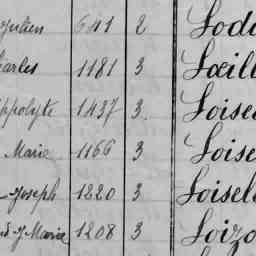 Julien 641 2 Lod
harles 1181 3 Lœill
ppolyte 1437 3. Loise
Marie 1166 3 Loise
Joseph 1820 3 Loisel
Marie 1208 3 Loizo